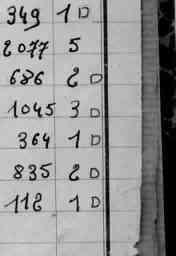 349 1 D
2077 5
686 2 D
1045 3 D
364 1 D
835 2 D
112 1 D